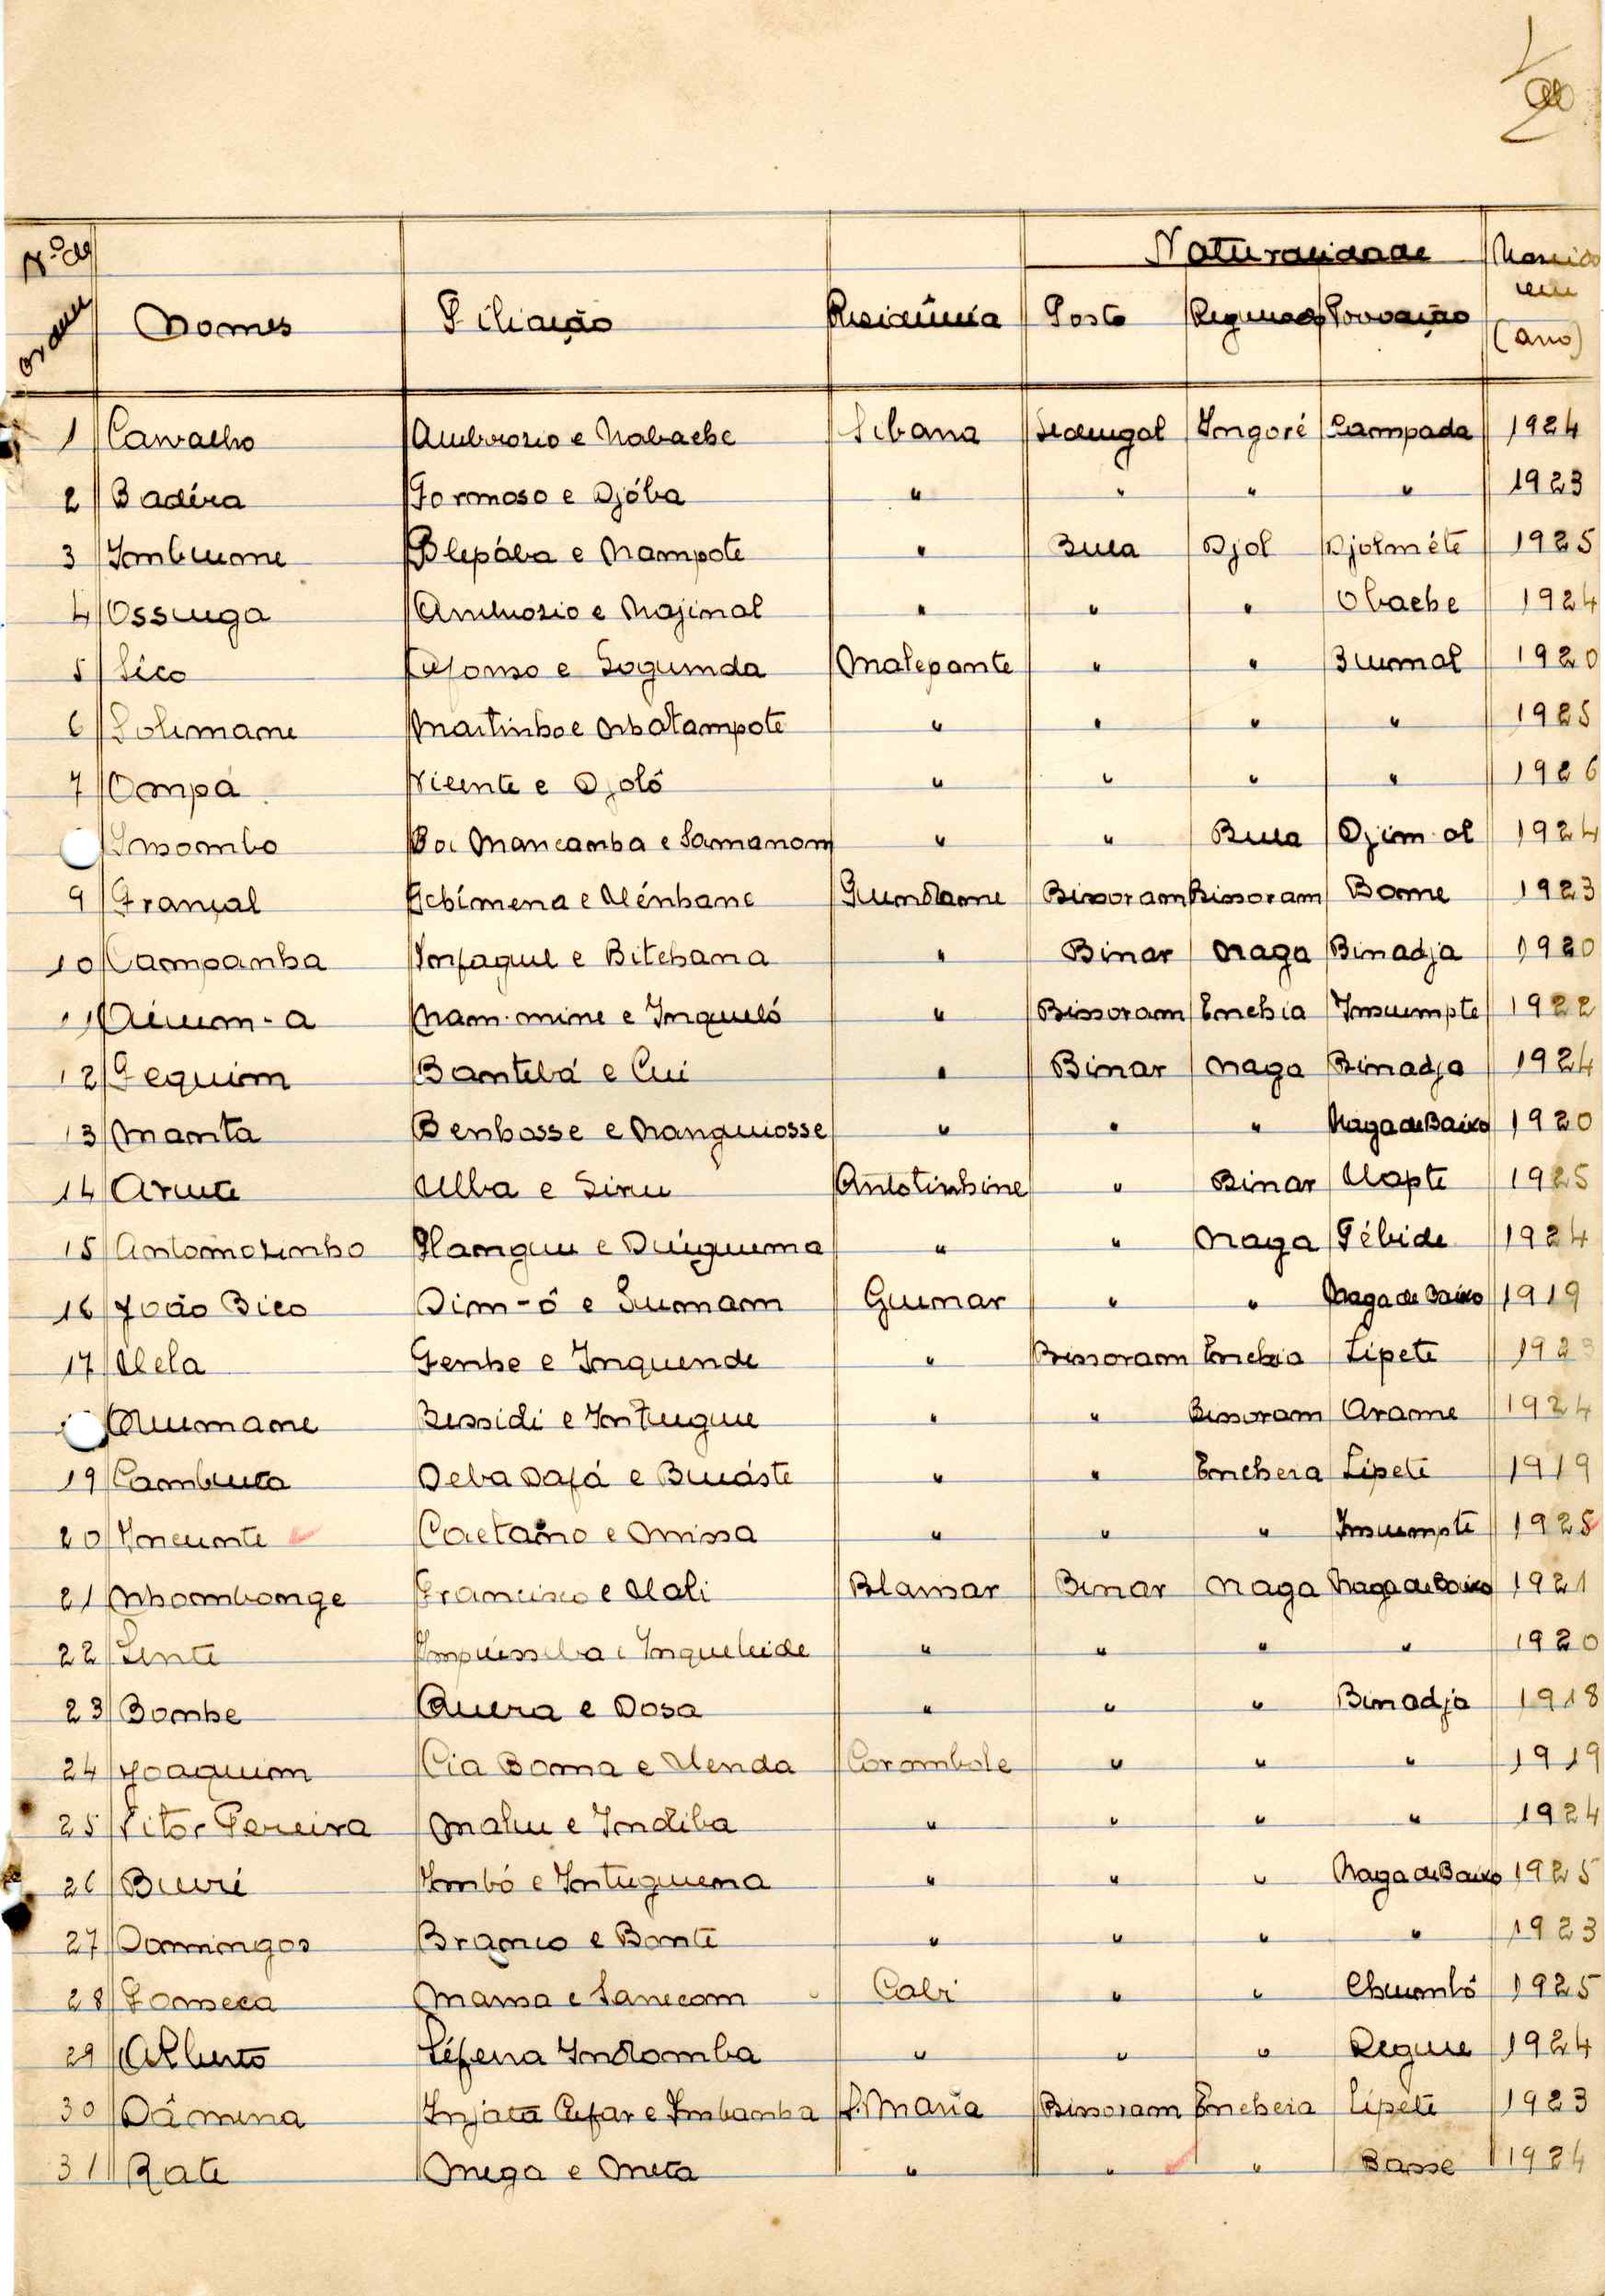 Naturalidade
Nº de ordem Nomes Filiação Residência Posto Regulado Povoação Nascido em (ano)
1 Carvalho Ambrozio e Nabache Libana Sedengal Ingoré Campada 1924
2 Badéra Formoso e Djóba " " " " 1923
3 Imbunne Blepába e Nampote " Bula Djol Djolméte 1925
4 Ossuga Ambrozio e Najinal " " " Obache 1924
5 Lico Afonso e Segunda Malepante " " Bumal 1920
6 Solimane Martinho e Nhatampote " " " " 1925
7 Ompá Vicente e Djoló " " " " 1926
Insombo Boi Mancamba e Samanom " " Bula Djim-ol 1924
9 Françal Gchímena e Uénhane Gundame Bissoram Bissoram Bome 1923
10 Campanha Infague e Bitchana " Binar Naga Binadja 1920
11 Aium-a Nam-mine e Inqueló " Bissoram Enchia Insumpte 1922
12 Fequim Bantibá e Cui " Binar Naga Binadja 1924
13 Manta Benhosse e Nanguiosse " " " Naga de Baixo 1920
14 Arute Ulba e Siru Antotinhine " Binar Uapte 1925
15 Antoniozinho Ilangue e Duiguema " " Naga Fébide 1924
16 João Bico Dim-ô e Sumam Gumar " " Naga de Baixo 1919
17 Uela Genhe e Inquende " Bissoram Encheia Lipete 1923
Quumane Bissidi e Intugue " " Bissoram Arame 1924
19 Cambuta Deba Dafá e Buáste " " Encheia Lipete 1919
20 Incunte Caetano e Missa " " " Insumpte 1925
21 Nhombonge Francisco e Uali Blassar Binar Naga Naga de Baixo 1921
22 Sente Impuisselba e Inqueleide " " " " 1920
23 Bombe Quera e Dosa " " " Binadja 1918
24 Joaquim Cia Boma e Uenda Corombole " " " 1919
25 Vitor Pereira Malu e Indiba " " " " 1924
26 Buri Imbó e Intuguena " " " Naga de Baixo 1925
27 Domingos Branco e Bonte " " " " 1923
28 Fonseca Mansa e Sanecom Cabi " " Chumbô 1925
29 Alberto Léfena Indomba " " " Regue 1924
30 Dâmena Injata Cufar e Imbamba S. Maria Bissoram Encheia Lipete 1923
31 Rate Mega e Meta " " " Basse 1924